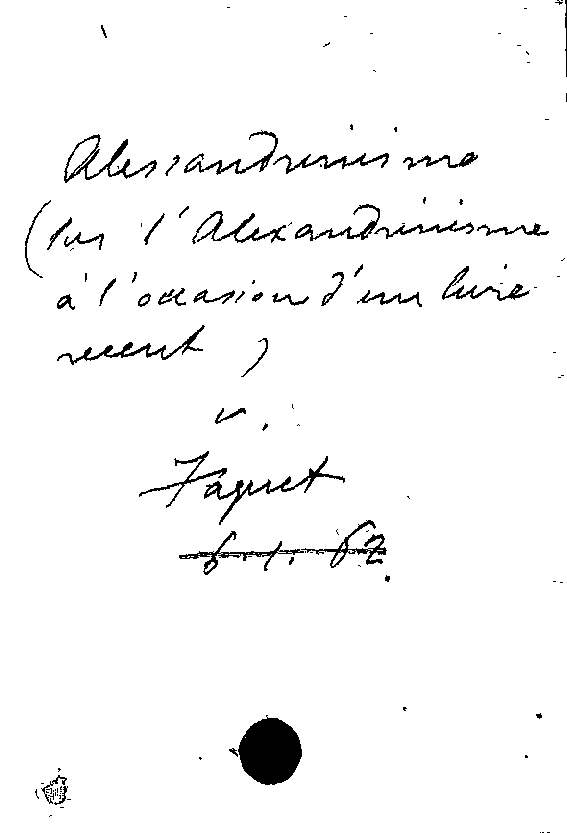 Alessandrinisme
(Sur l'Alexandrinisme
à l'occasion d'un livre
recent)
v.
Faguet
6.1.62.